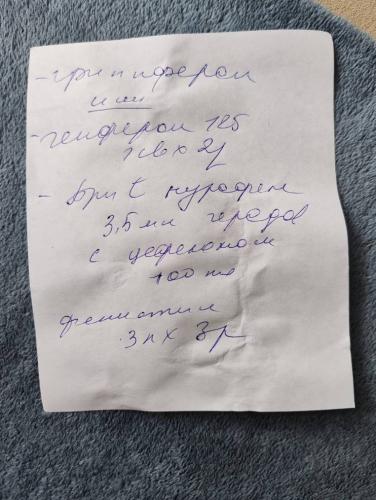 - гриппферон
или
- генферон 125
1св х 2р
- при t нурофен
3,5 мл черед
с цефеконом
100 мг
фенистил
3к х 3р